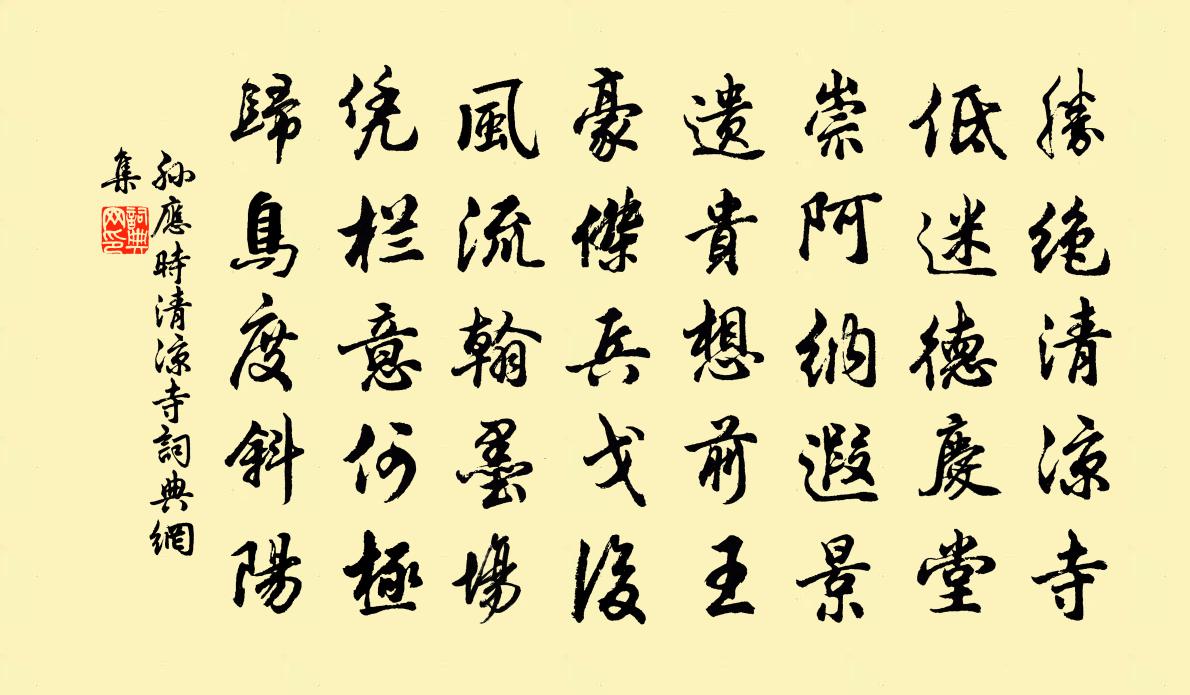 勝絶清凉寺
低迷德慶堂
崇阿納遐景
遗貴想前王
豪傑兵戈後
風流翰墨場
凭栏意何極
歸鳥度斜陽
孙應時清凉寺詞典網
集
詞典
网印